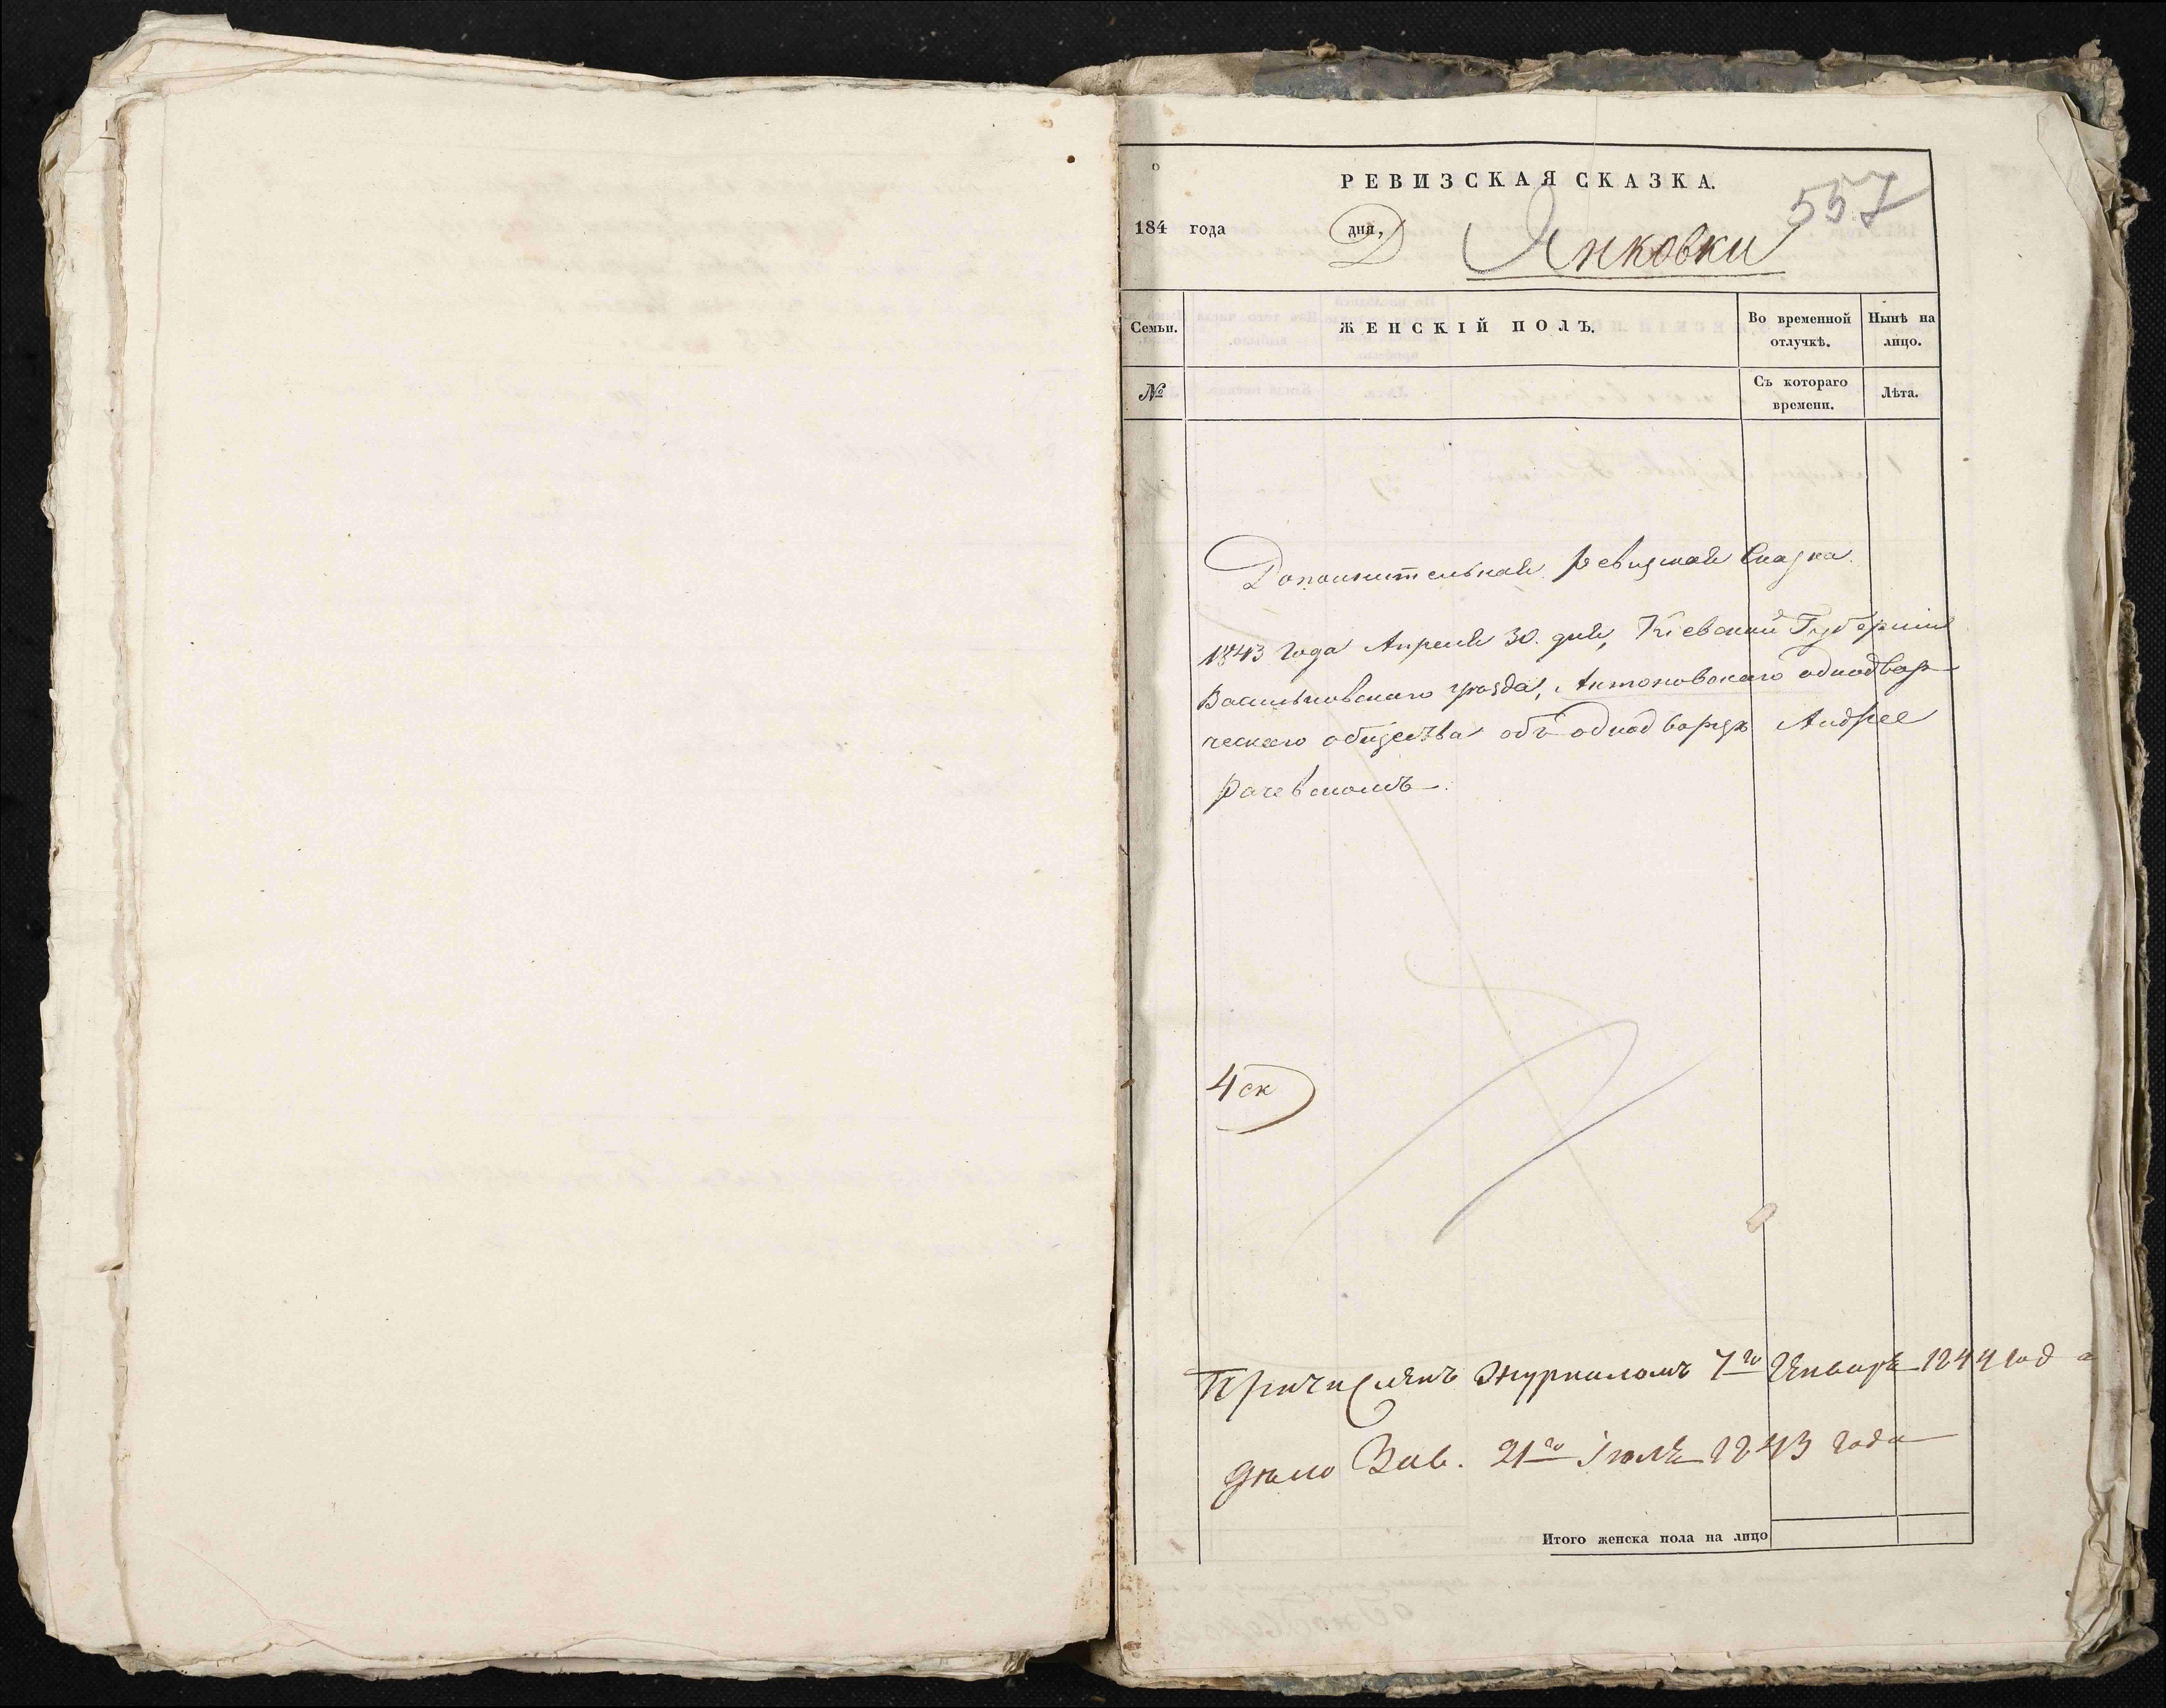 РЕВИЗСКАЯ СКАЗКА.
557
184 года дня,
Д Янковки
Семьи. ЖЕНСКІЙ ПОЛЪ. Во временной отлучкѣ. Нынѣ на лицо.
№ Съ котораго времени. Лѣта.
Дополнительная ревизская Сказка.
1843 года Апреля 30. дня, Кіевской Губерніи
Васильковскаго уезда, Антоновскаго однодвор-
ческаго общества объ однодворцѣ Андрее
Рачевскомъ.
4 ск
Причисленъ Журналомъ 7го Января 1844 года
дѣло Зав. 21го Іюля 1843 года
Итого женска пола на лицо